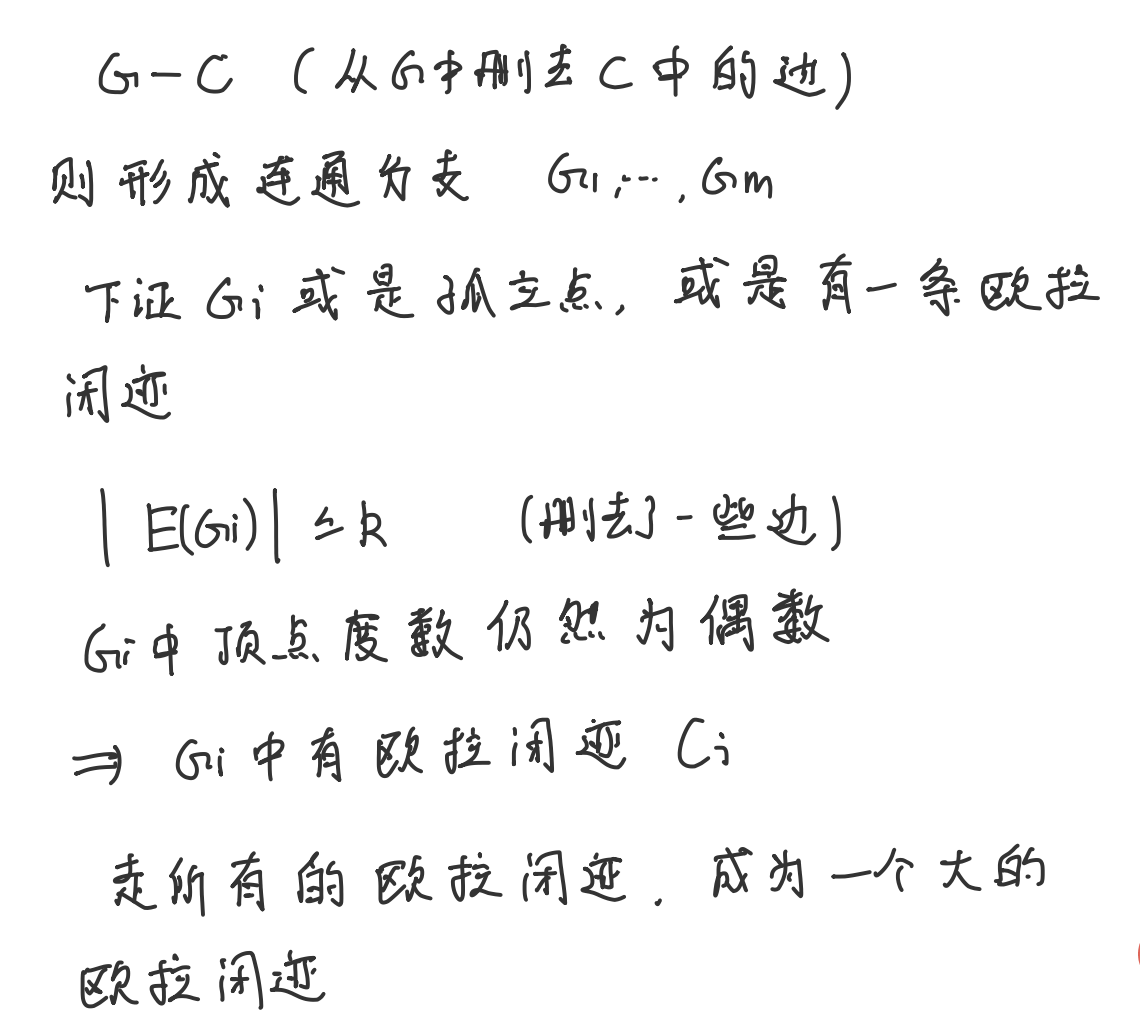 G-C (从G中删去C中的边)
则形成连通分支 G1,…,Gm
下证Gi或是孤立点,或是有一条欧拉
闭迹
|E(Gi)|≤k (删去了一些边)
Gi中顶点度数仍然为偶数
⇒ Gi中有欧拉闭迹 Ci
走所有的欧拉闭迹.成为一个大的
欧拉闭迹